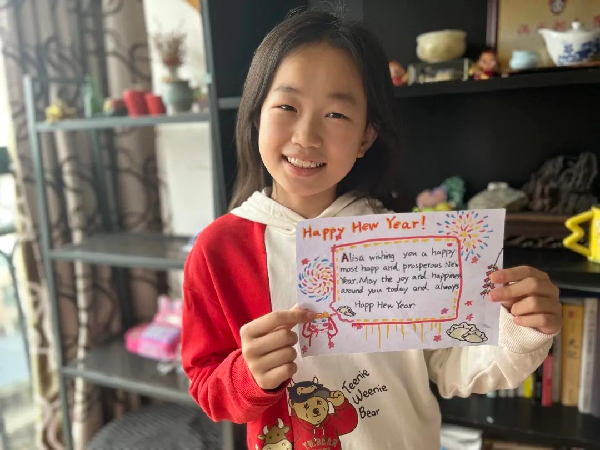 Happy New Year!
Alisa wishing you a happy
most happ and prosperous New
Year. May the joy and happiness
around you today and always
Happ New Year
Teenie
Weenie
Bear